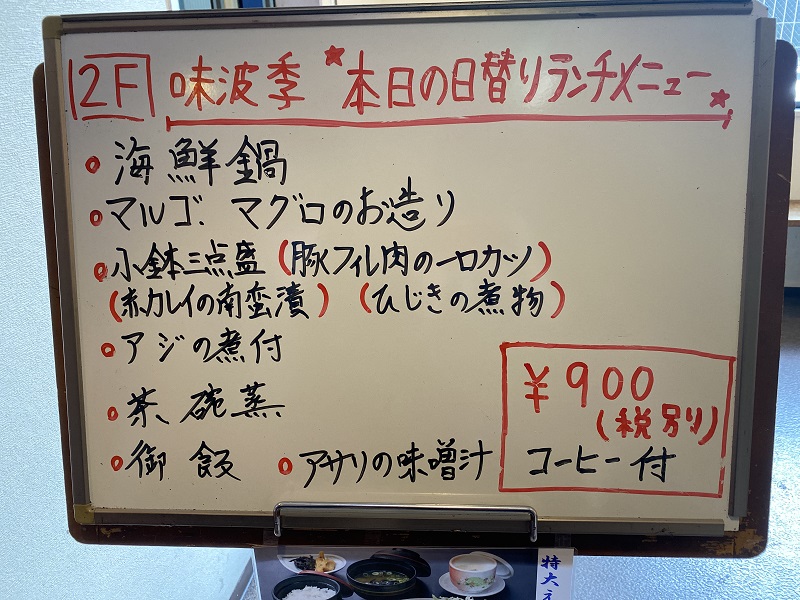 2F 味波季 ★本日の日替りランチメニュー★
海鮮鍋
マルゴ、マグロのお造り
小鉢三点盛(豚フィレ肉の一口カツ)
(赤カレイの南蛮漬) (ひじきの煮物)
アジの煮付
茶碗蒸
御飯 アサリの味噌汁
¥900
(税別)
コーヒー付
特大え